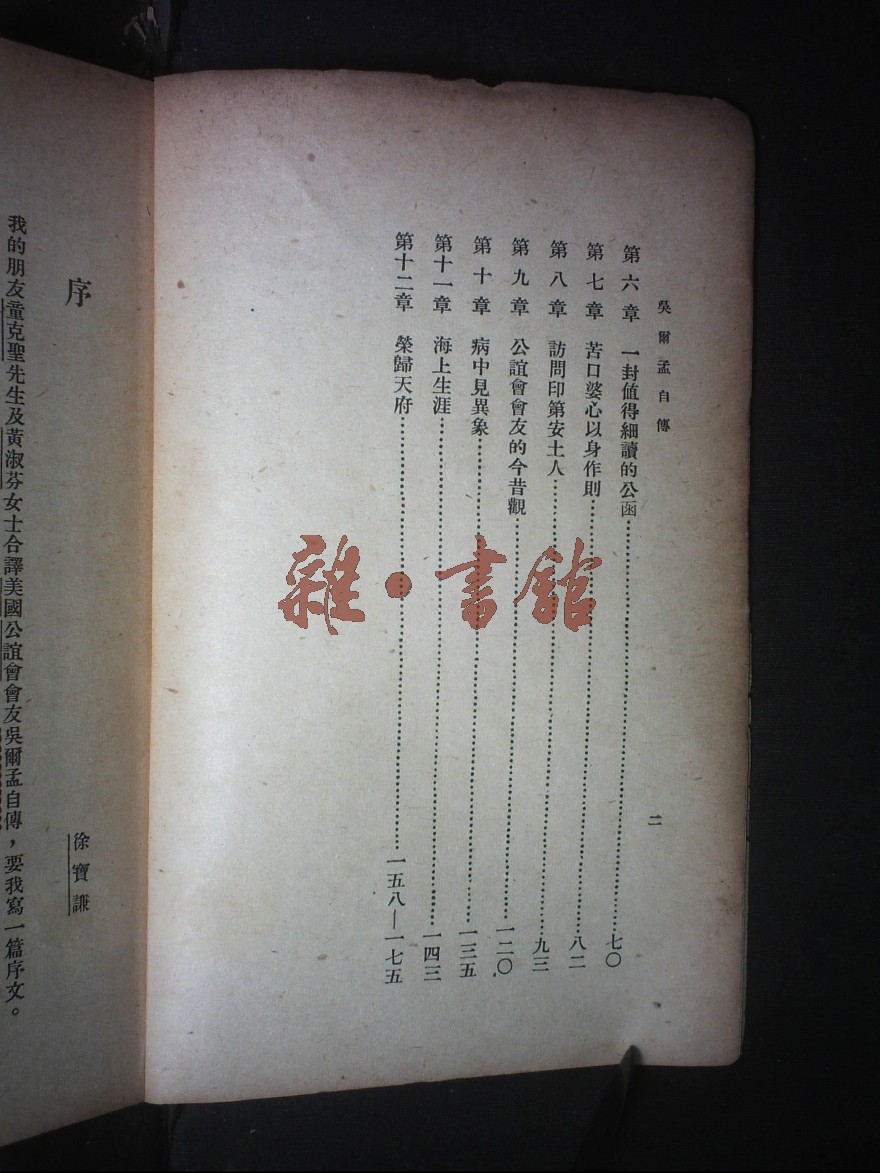 吳爾孟自傳
二
第六章 一封值得細讀的公函……七〇
第七章 苦口婆心以身作則……八二
第八章 訪問印第安土人……九三
第九章 公誼會會友的今昔觀……一二〇
第十章 病中見異象……一三五
第十一章 海上生涯……一四三
第十二章 榮歸天府……一五八—一七五
雜·書館
序
徐寶謙
我的朋友童克聖先生及黃淑芬女士合譯美國公誼會會友吳爾孟自傳，要我寫一篇序文。